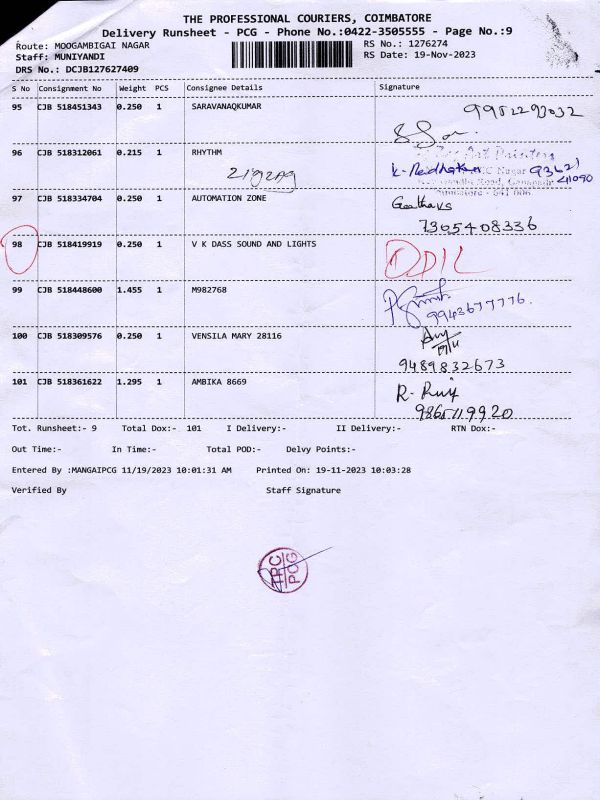 THE PROFESSIONAL COURIERS, COIMBATORE
Delivery Runsheet - PCG - Phone No.:0422-3505555 - Page No.:9
Route: MOOGAMBIGAI NAGAR
RS No.: 1276274
Staff: MUNIYANDI
RS Date: 19-Nov-2023
DRS No.: DCJB127627409
S No Consignment No Weight PCS Consignee Details Signature
95 CJB 518451343 0.250 1 SARAVANAQKUMAR
96 CJB 518312061 0.215 1 RHYTHM
zigzag
97 CJB 518334704 0.250 1 AUTOMATION ZONE
7305408336
98 CJB 518419919 0.250 1 V K DASS SOUND AND LIGHTS
99 CJB 518448600 1.455 1 M982768
9943677776.
100 CJB 518309576 0.250 1 VENSILA MARY 28116
9489832673
101 CJB 518361622 1.295 1 AMBIKA 8669
Tot. Runsheet:- 9 Total Dox:- 101 I Delivery:- II Delivery:- RTN Dox:-
Out Time:- In Time:- Total POD:- Delvy Points:-
Entered By :MANGAIPCG 11/19/2023 10:01:31 AM Printed On: 19-11-2023 10:03:28
Verified By Staff Signature
TPC
PCG